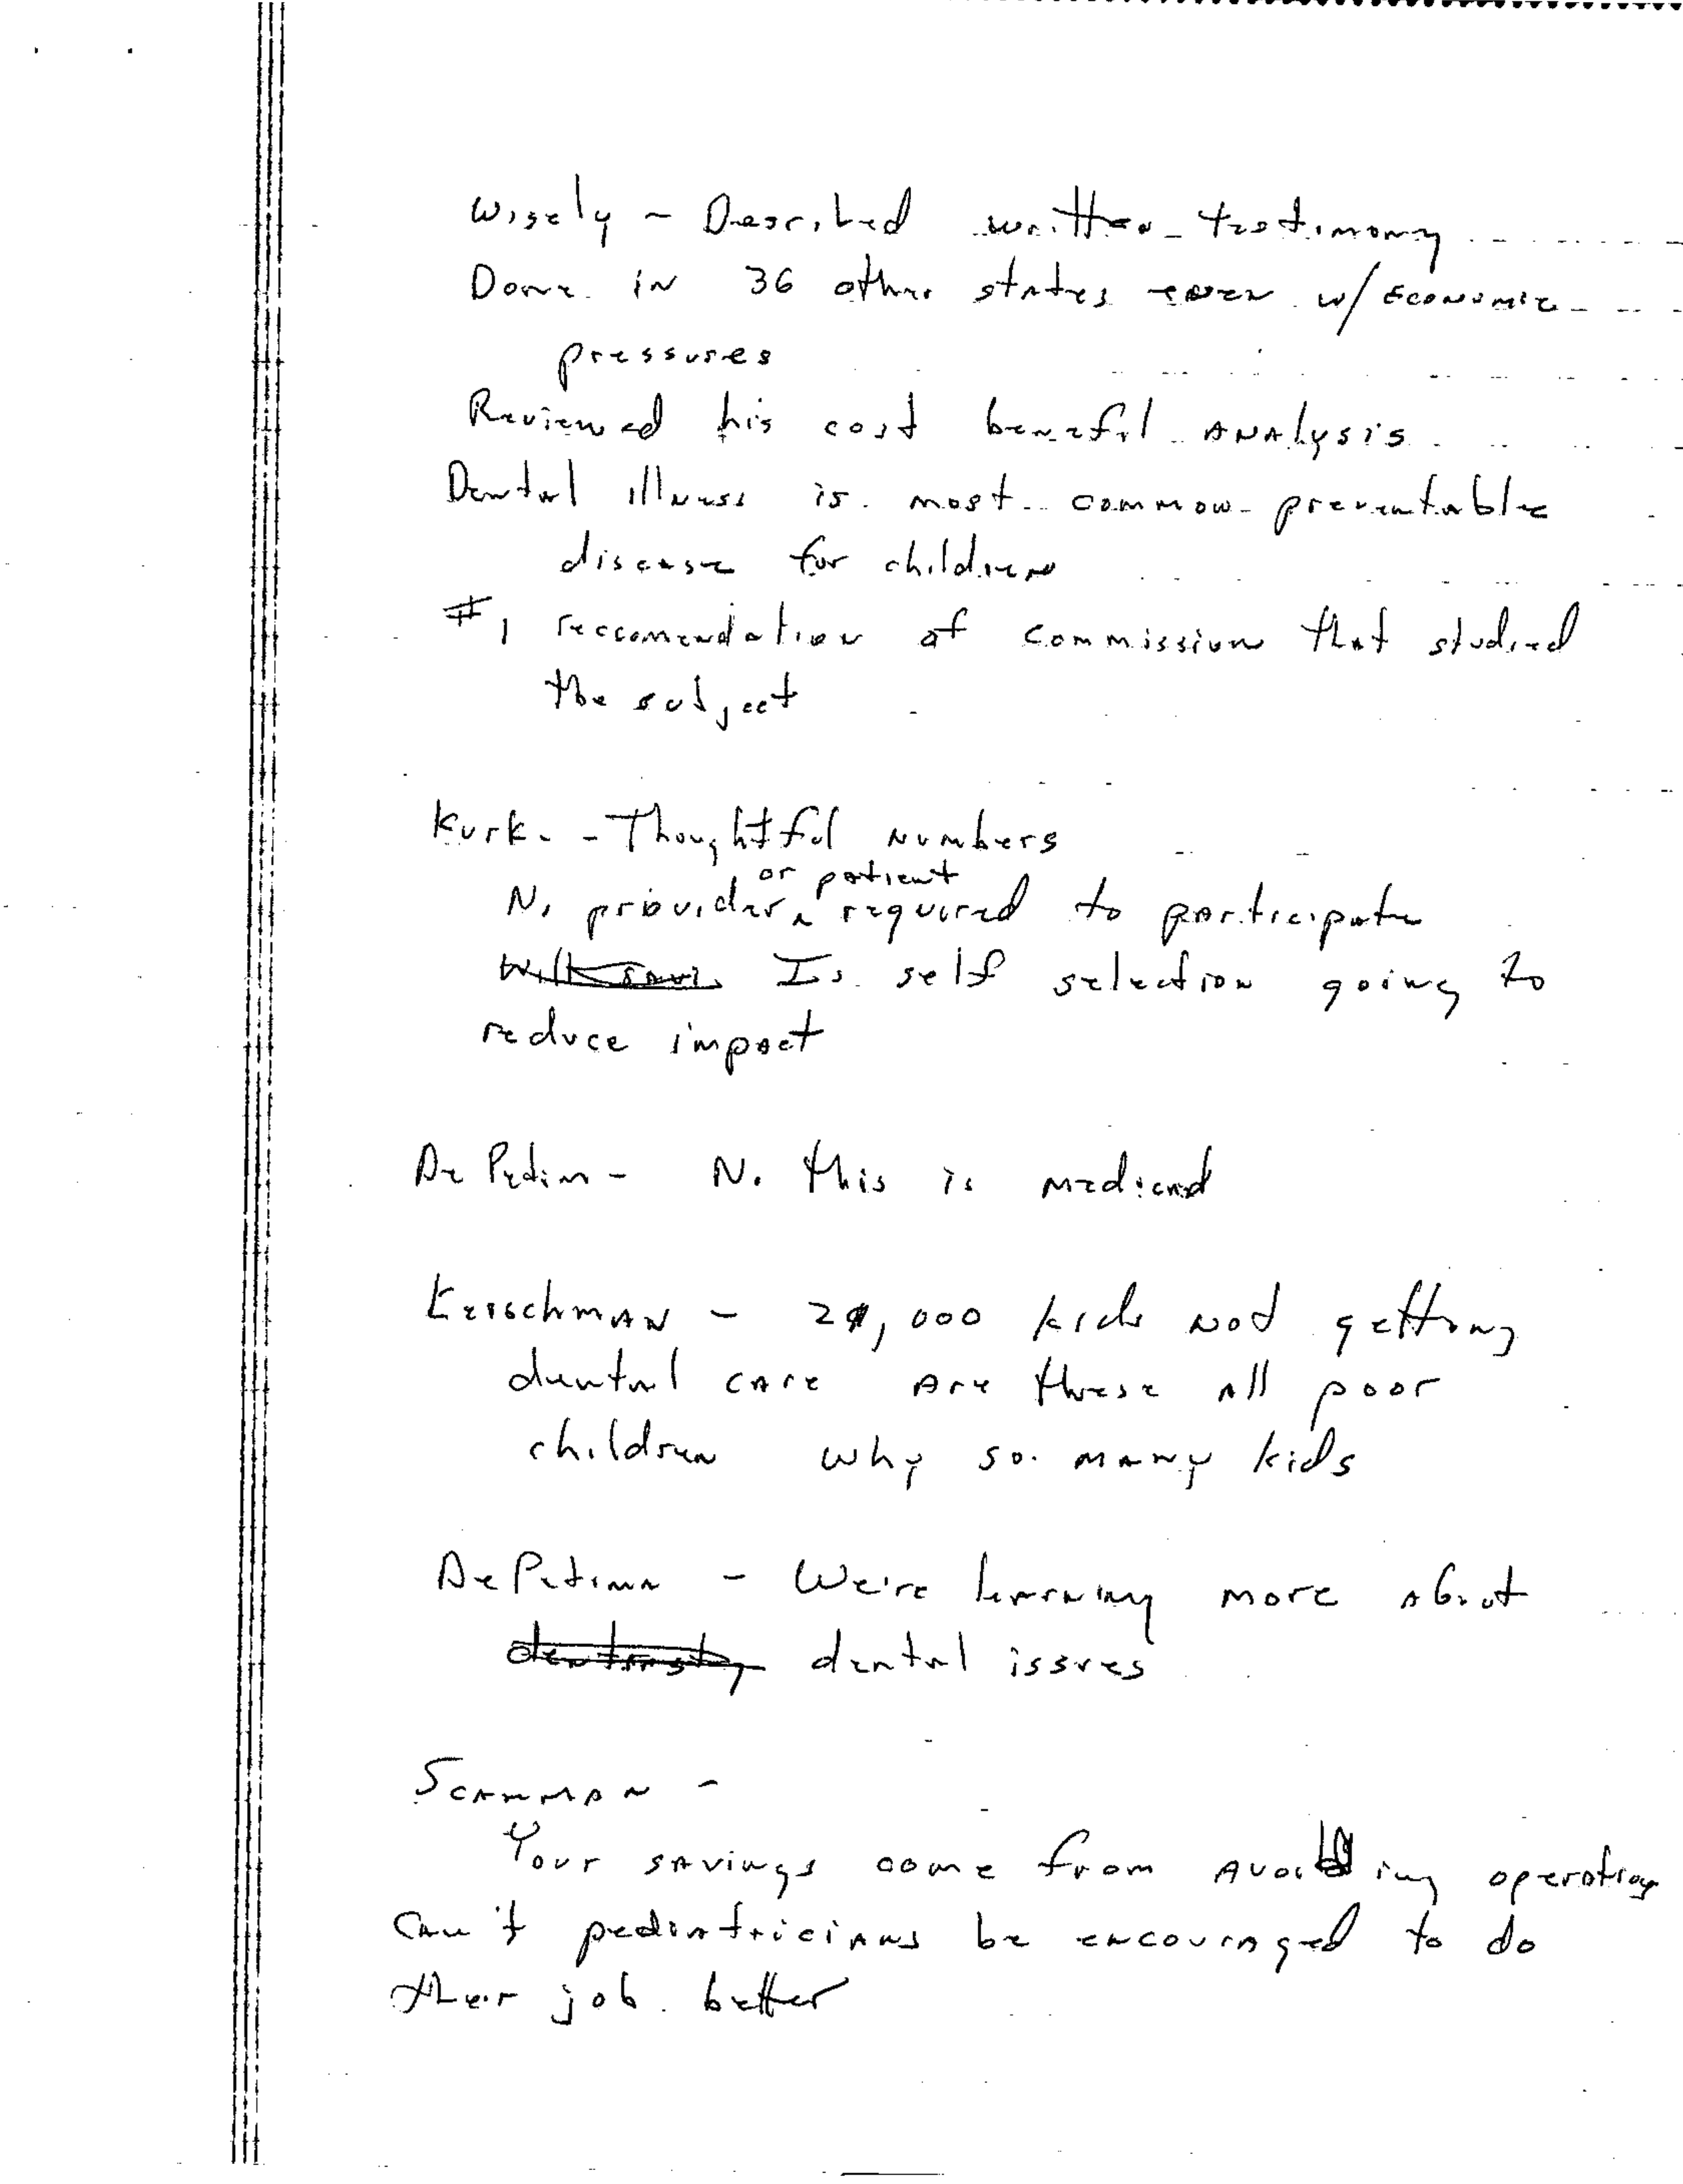 Wisely - Described written testimony
Done in 36 other states even w/ Economic
pressures
Reviewed his cost benefit ANALYSIS
Dental illness is most common preventable
disease for children
#1 reccomendation of commission that studied
the subject
Kurk - Thoughtful numbers
or patient
No provider ^ required to participate
Is self selection going to
reduce impact
No this is medicaid
20,000 kids not getting
dental care Are these all poor
children why so many kids
We're learning more about
dentistry dental issues
Scamman -
Your savings come from avoiding operating
Can't pediatricians be encouraged to do
their job better